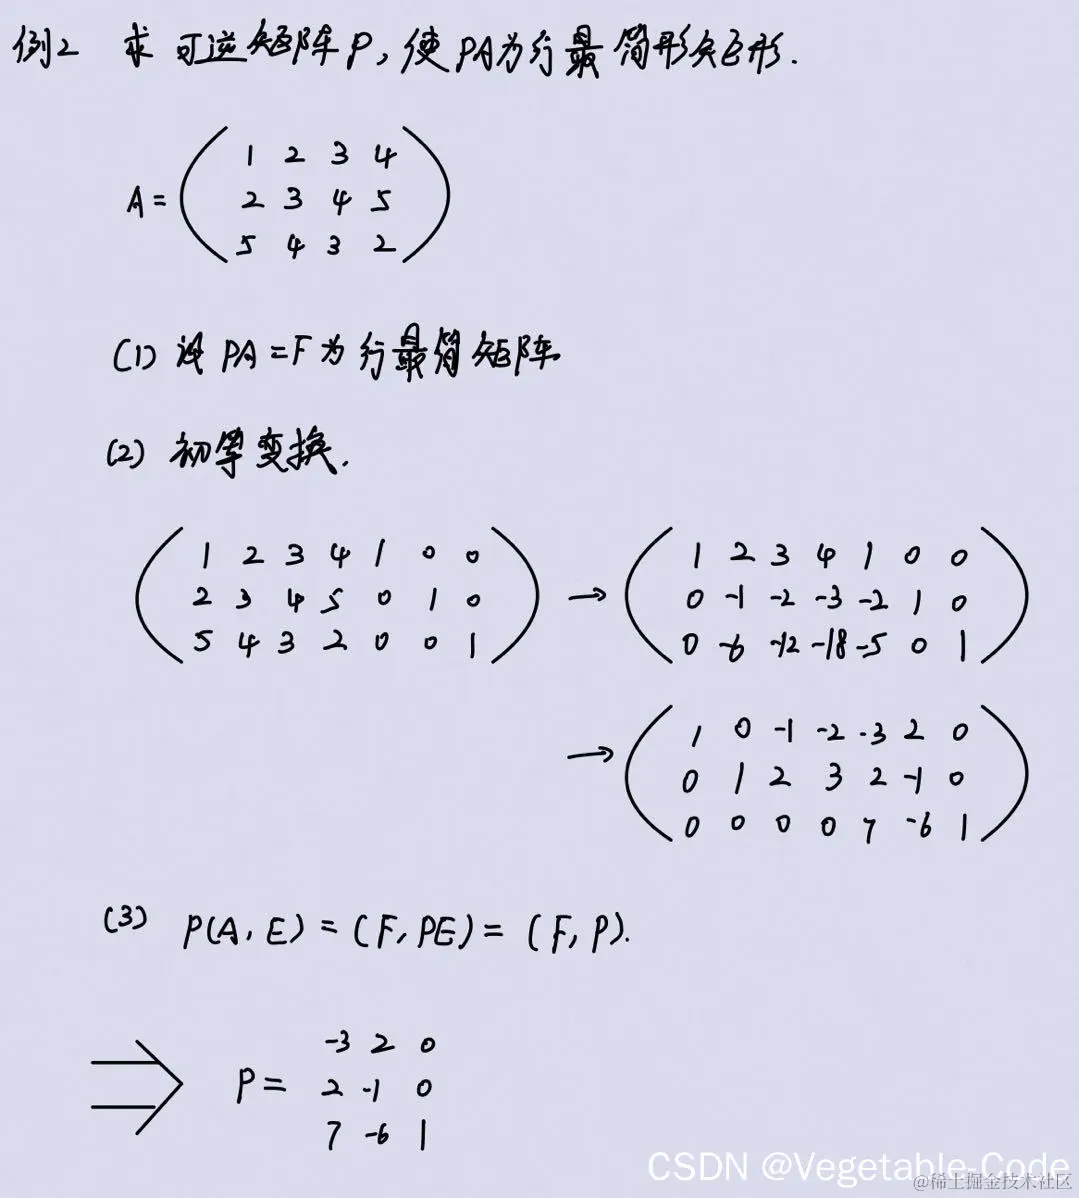 例2 求可逆矩阵P,使PA为行最简形矩形.
1 2 3 4
A= 2 3 4 5
5 4 3 2
(1) 设 PA=F为行最简矩阵
(2) 初等变换.
1 2 3 4 1 0 0 → 1 2 3 4 1 0 0
2 3 4 5 0 1 0 0 -1 -2 -3 -2 1 0
5 4 3 2 0 0 1 0 -6 -12 -18 -5 0 1
→ 1 0 -1 -2 -3 2 0
0 1 2 3 2 -1 0
0 0 0 0 7 -6 1
(3) P(A, E) = (F, PE) = (F, P).
-3 2 0
⇒ P= 2 -1 0
7 -6 1
CSDN @Vegetable-Code
@稀土掘金技术社区